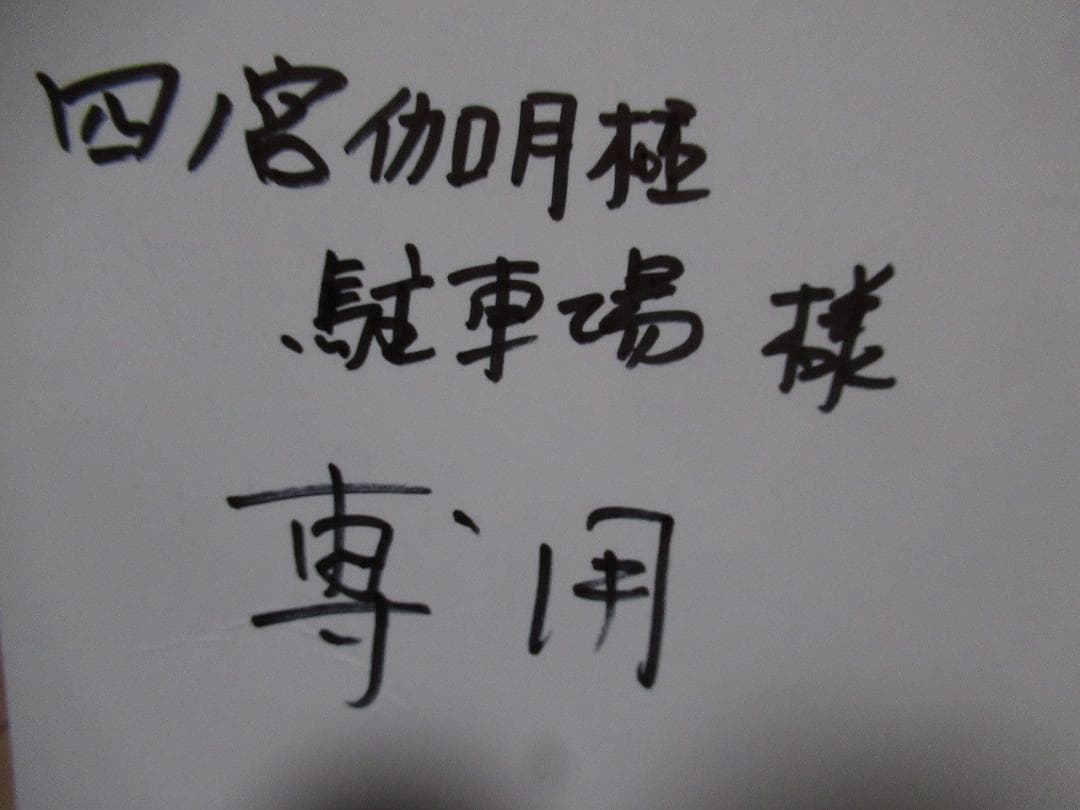 四ノ宮伽月極
駐車場 様
専用